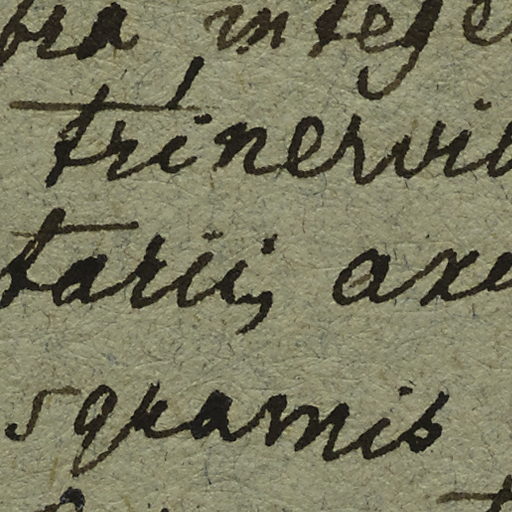 bra intege
trinervi
tarii, axe
squamis